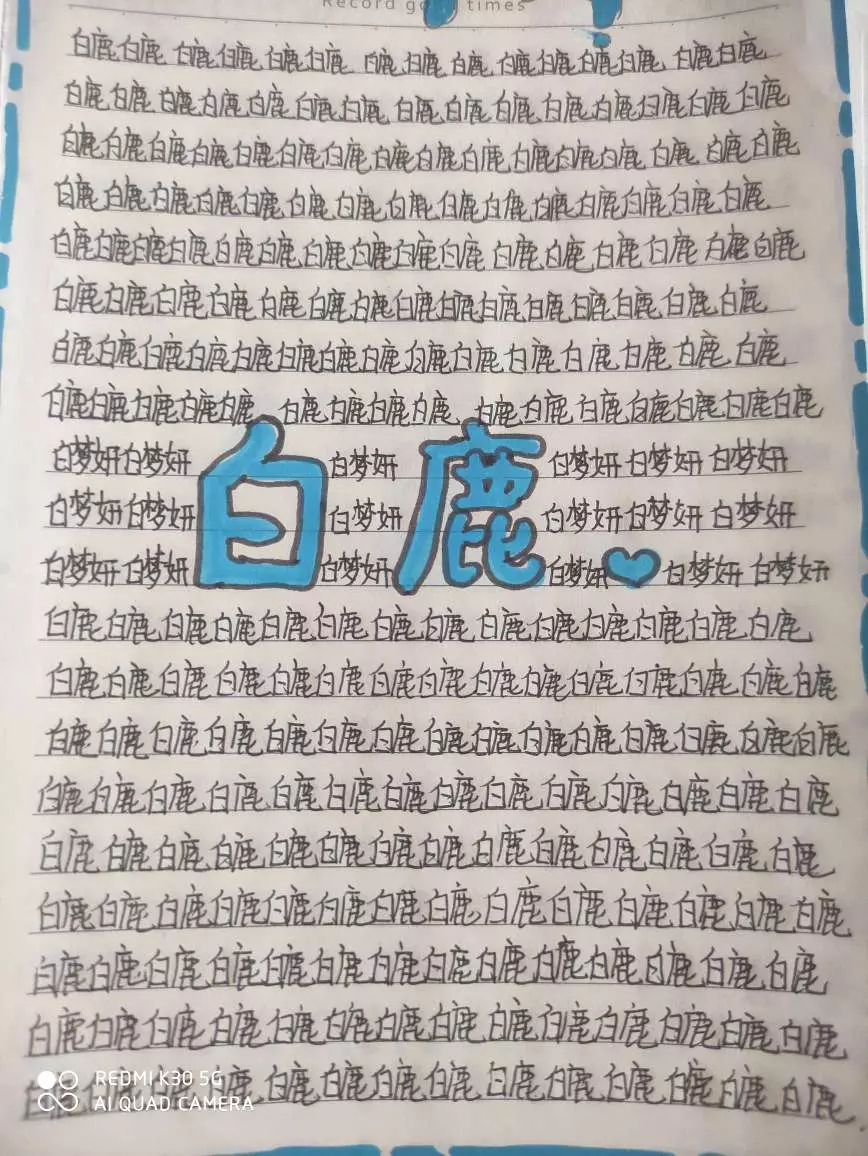 Record good times
白鹿白鹿白鹿白鹿白鹿白鹿白鹿白鹿白鹿白鹿白鹿白鹿白鹿白鹿白鹿
白鹿白鹿白鹿白鹿白鹿白鹿白鹿白鹿白鹿白鹿白鹿白鹿白鹿白鹿白鹿
白鹿白鹿白鹿白鹿白鹿白鹿白鹿白鹿白鹿白鹿白鹿白鹿白鹿白鹿白鹿白鹿
白鹿白鹿白鹿白鹿白鹿白鹿白鹿白鹿白鹿白鹿白鹿白鹿白鹿白鹿白鹿
白鹿白鹿白鹿白鹿白鹿白鹿白鹿白鹿白鹿白鹿白鹿白鹿白鹿白鹿白鹿白鹿
白鹿白鹿白鹿白鹿白鹿白鹿白鹿白鹿白鹿白鹿白鹿白鹿白鹿白鹿白鹿
白鹿白鹿白鹿白鹿白鹿白鹿白鹿白鹿白鹿白鹿白鹿白鹿白鹿白鹿白鹿
白鹿白鹿白鹿白鹿白鹿白鹿白鹿白鹿白鹿白鹿白鹿白鹿白鹿白鹿白鹿白鹿
白梦妍白梦妍 白梦妍 白梦妍白梦妍白梦妍
白梦妍白梦妍 白梦妍 白梦妍白梦妍白梦妍
白鹿
白梦妍白梦妍 白梦妍 白梦妍 白梦妍白梦妍
白鹿白鹿白鹿白鹿白鹿白鹿白鹿白鹿白鹿白鹿白鹿白鹿白鹿白鹿
白鹿白鹿白鹿白鹿白鹿白鹿白鹿白鹿白鹿白鹿白鹿白鹿白鹿白鹿白鹿
白鹿白鹿白鹿白鹿白鹿白鹿白鹿白鹿白鹿白鹿白鹿白鹿白鹿白鹿白鹿
白鹿白鹿白鹿白鹿白鹿白鹿白鹿白鹿白鹿白鹿白鹿白鹿白鹿白鹿
白鹿白鹿白鹿白鹿白鹿白鹿白鹿白鹿白鹿白鹿白鹿白鹿白鹿白鹿
白鹿白鹿白鹿白鹿白鹿白鹿白鹿白鹿白鹿白鹿白鹿白鹿白鹿白鹿
白鹿白鹿白鹿白鹿白鹿白鹿白鹿白鹿白鹿白鹿白鹿白鹿白鹿白鹿
白鹿白鹿白鹿白鹿白鹿白鹿白鹿白鹿白鹿白鹿白鹿白鹿白鹿白鹿
白鹿白鹿白鹿白鹿白鹿白鹿白鹿白鹿白鹿白鹿白鹿白鹿白鹿白鹿
REDMI K30 5G
AI QUAD CAMERA